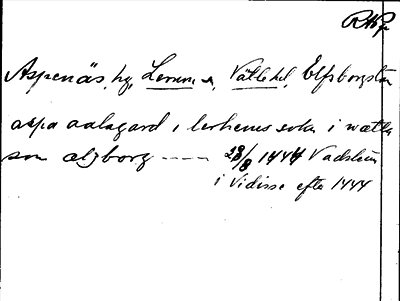 RAp
Aspenäs, hg, Lerum s, Vätle hd, Elfsborgs län
aspa aalagard, lerhems sokn i wætla
son elzborg ---- 28/8 1444 Vadstena
i Vidisse efter 1444